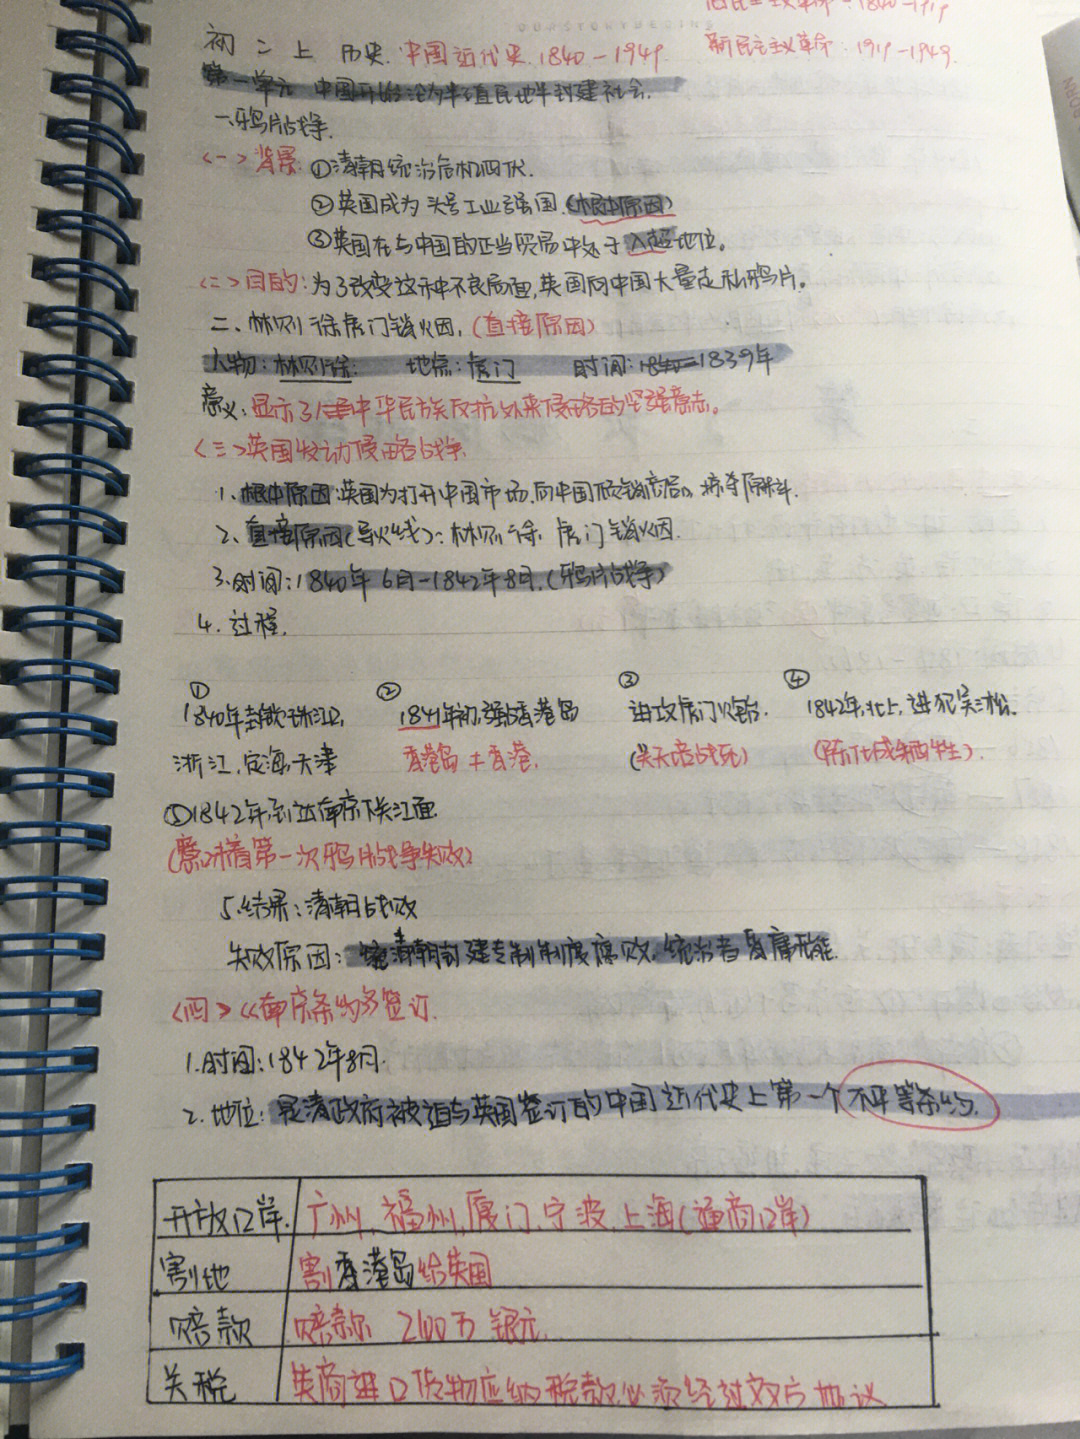 旧民主主义革命：1840-1919
初二上 历史 中国近代史 1840-1949 新民主主义革命：1919-1949
第一单元 中国开始沦为半殖民地半封建社会.
一.鸦片战争.
<一>背景：①清朝统治危机四伏.
②英国成为头号工业强国.(根本原因)
③英国在与中国的正当贸易中处于入超地位。
<二>目的：为了改变这种不良局面,英国向中国大量走私鸦片。
二、林则徐虎门销烟.(直接原因)
人物：林则徐. 地点：虎门 时间：1839年
意义：显示了中华民族反抗外来侵略的坚强意志。
<三>英国发动侵略战争.
1、根本原因：英国为打开中国市场,向中国倾销商品、掠夺原料.
2、直接原因(导火线)：林则徐 虎门销烟.
3.时间：1840年6月-1842年8月.(鸦片战争)
4.过程.
① ② ③ ④
1840年封锁珠江口, 1841年初,强占香港岛 进攻虎门炮台. 1842年,北上,进犯吴淞.
浙江,定海,天津 香港岛≠香港. (关天培战死) (陈化成牺牲).
⑤1842年到达南京下关江面.
(意味着第一次鸦片战争失败)
5.结果：清朝战败
失败原因：清朝封建专制制度腐败,统治者昏庸无能.
<四>《南京条约》签订.
1.时间：1842年8月.
2.地位：是清政府被迫与英国签订的中国近代史上第一个不平等条约.
开放口岸. 广州、福州、厦门、宁波、上海(通商口岸)
割地 割香港岛给英国
赔款 赔款 2100万银元.
关税 英商进口货物应纳税款,必须经过双方协议